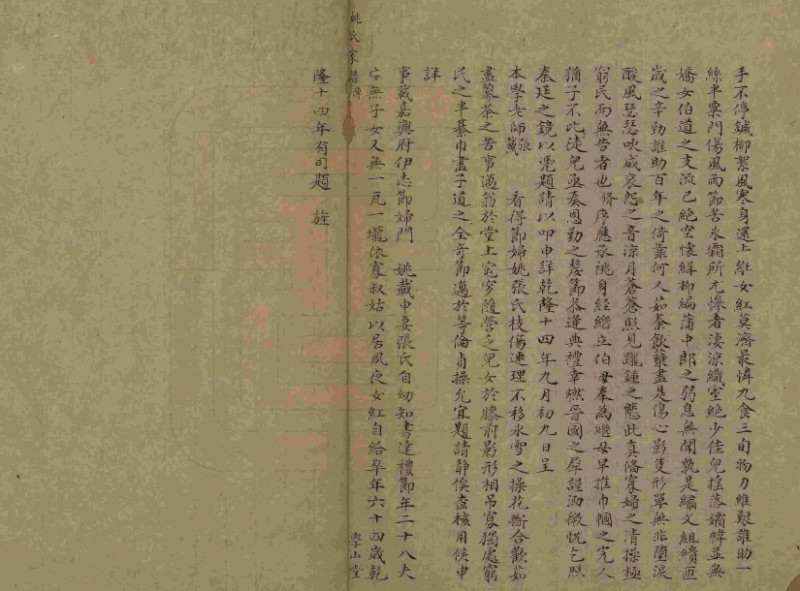 手不停鍼柳絮風寒身還上繼女紅莫濟最憐九食三旬物力維艱誰助一
絲半粟門傷風雨節苦氷霜所尤慘者淒涼織室絕少佳兒搖落孀幃並無
嬌女伯道之支流已絕空懷鮮柳編蒲中郎之弱息無聞孰是繡文組繢匝
歲之辛勤誰助百年之倚靠何人茹荼飲蘗盡是傷心影隻形單無非墮淚
酸風瑟瑟吹成哀怨之音涼月蒼蒼照見踽踽之態此真脩寡婦之清操極
窮民而無告者也脩序應承祧身經繼立伯母奉為繼母早推巾幗之完人
猶子不比徒兒亟奏恩勤之
節恭逢典禮幸燃晉國之犀謹泐微忱乞照
秦廷之鏡以憑題請以叩申詳乾隆十四年九月初九日呈
本學老師張戴 看得節婦姚張氏枝傷連理不移氷雪之操花斷合歡茹
盡蓼荼之苦事邁翁於堂上窀穸隨營乏兒女於膝前影形相弔寡獨處窮
氏之半綦巾盡子道之全奇節邁於等倫貞操允宜題請靜俟查核用候申
詳
事蹟嘉興府伊志節婦門 姚戴中妻張氏自幼知書達禮節年二十八夫
亡無子女又無一瓦一壠依寡叔姑以居夙夜女紅自給卒年六十四歲乾
隆十四年有司題旌
姚氏家譜傳
學山堂